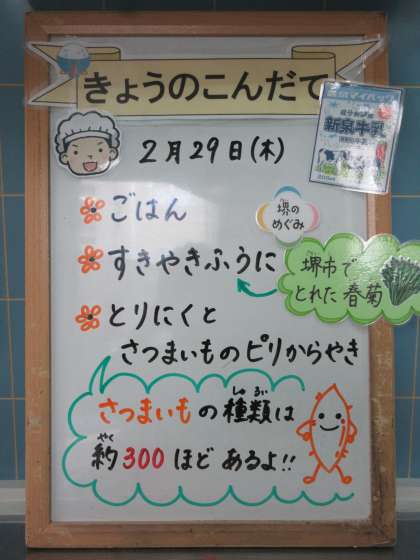 きょうのこんだて
2月29日(木)
新泉牛乳
ごはん
堺の
めぐみ
すきやきふうに
堺市で
とれた春菊
とりにくと
さつまいものピリからやき
さつまいもの種類は
しゅるい
約300ほどあるよ!!
やく